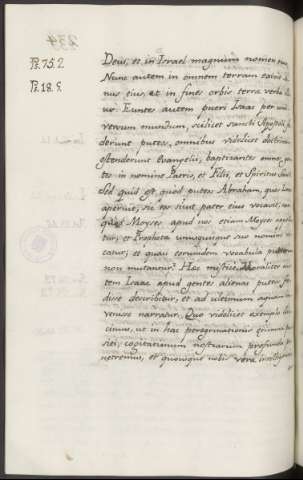 234
Ps. 75. 2
Ps. 18. 5.
Deus, et in Israel magnum nomen eius,
Nunc autem in omnem terram exivit
nus eius, et in fines orbis terræ verba
Euntes autem pueri Isaac per uni
versum mundum, scilicet sancti Apostoli,
derunt puteos, omnibus videlicet doctrinam
ostenderunt Evangelii, baptizantes omnes
tes in nomine Patris, et Filii, et Spiritus Sancti
Sed quid est quod puteos Abraham, quos Isaac
aperuit, sic eos sicut pater eius vocavit, nisi
quod Moyses apud nos etiam Moyses appella
tur, et Propheta unusquisque suo nomine vo
catur, et quasi eorundem vocabula puteorum
non mutantur? Hæc mistice. Moraliter au
tem Isaac apud gentes alienas puteos fo
disse describitur, et ad ultimum aquam in
venisse narratur. Quo videlicet exemplo dis
cimus, ut in hac peregrinationis ærumna po
siti, cogitationum nostrarum profunda pe
netremus, et quousque nobis vera intelligen